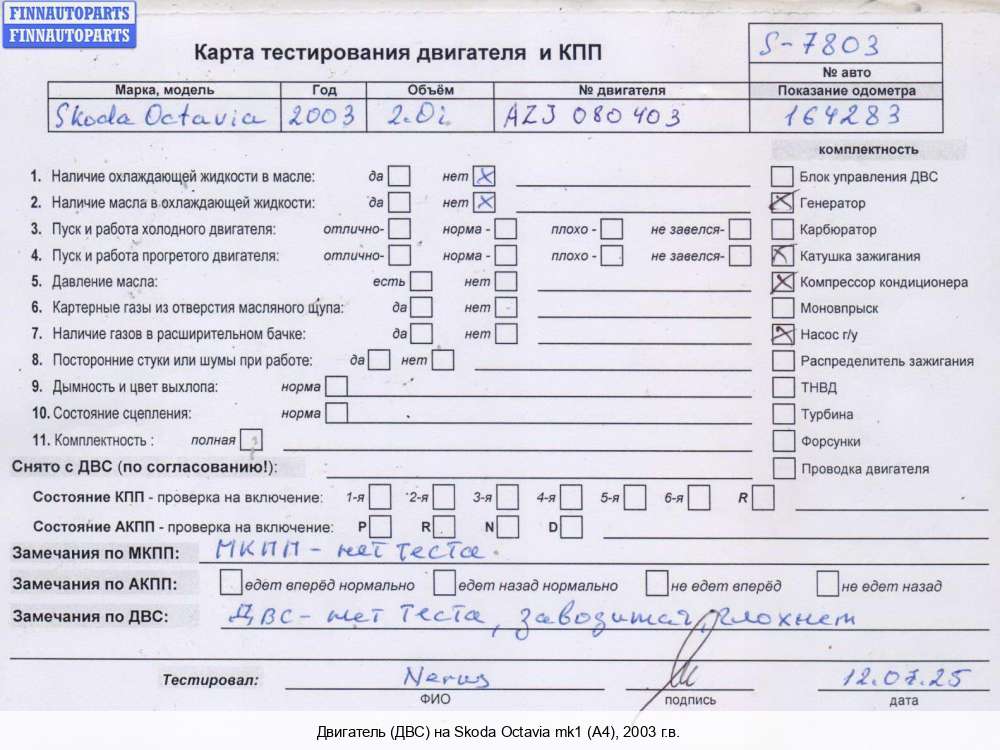 FINNAUTOPARTS
FINNAUTOPARTS
Карта тестирования двигателя и КПП
S-7803
№ авто
Марка, модель Год Объём № двигателя Показание одометра
Skoda Octavia 2003 2.0i AZJ 080403 164283
комплектность
1. Наличие охлаждающей жидкости в масле: да нет X Блок управления ДВС
2. Наличие масла в охлаждающей жидкости: да нет X X Генератор
3. Пуск и работа холодного двигателя: отлично- норма - плохо - не завелся- Карбюратор
4. Пуск и работа прогретого двигателя: отлично- норма - плохо - не завелся- X Катушка зажигания
5. Давление масла: есть нет X Компрессор кондиционера
6. Картерные газы из отверстия масляного щупа: да нет Моновпрыск
7. Наличие газов в расширительном бачке: да нет X Насос г/у
8. Посторонние стуки или шумы при работе: да нет Распределитель зажигания
9. Дымность и цвет выхлопа: норма ТНВД
10. Состояние сцепления: норма Турбина
11. Комплектность : полная Форсунки
Снято с ДВС (по согласованию!): Проводка двигателя
Состояние КПП - проверка на включение: 1-я 2-я 3-я 4-я 5-я 6-я R
Состояние АКПП - проверка на включение: P R N D
Замечания по МКПП: МКПП - нет теста
Замечания по АКПП: едет вперёд нормально едет назад нормально не едет вперёд не едет назад
Замечания по ДВС: ДВС - нет теста, заводится, глохнет
Тестировал: 12.07.25
ФИО подпись дата
Двигатель (ДВС) на Skoda Octavia mk1 (A4), 2003 г.в.